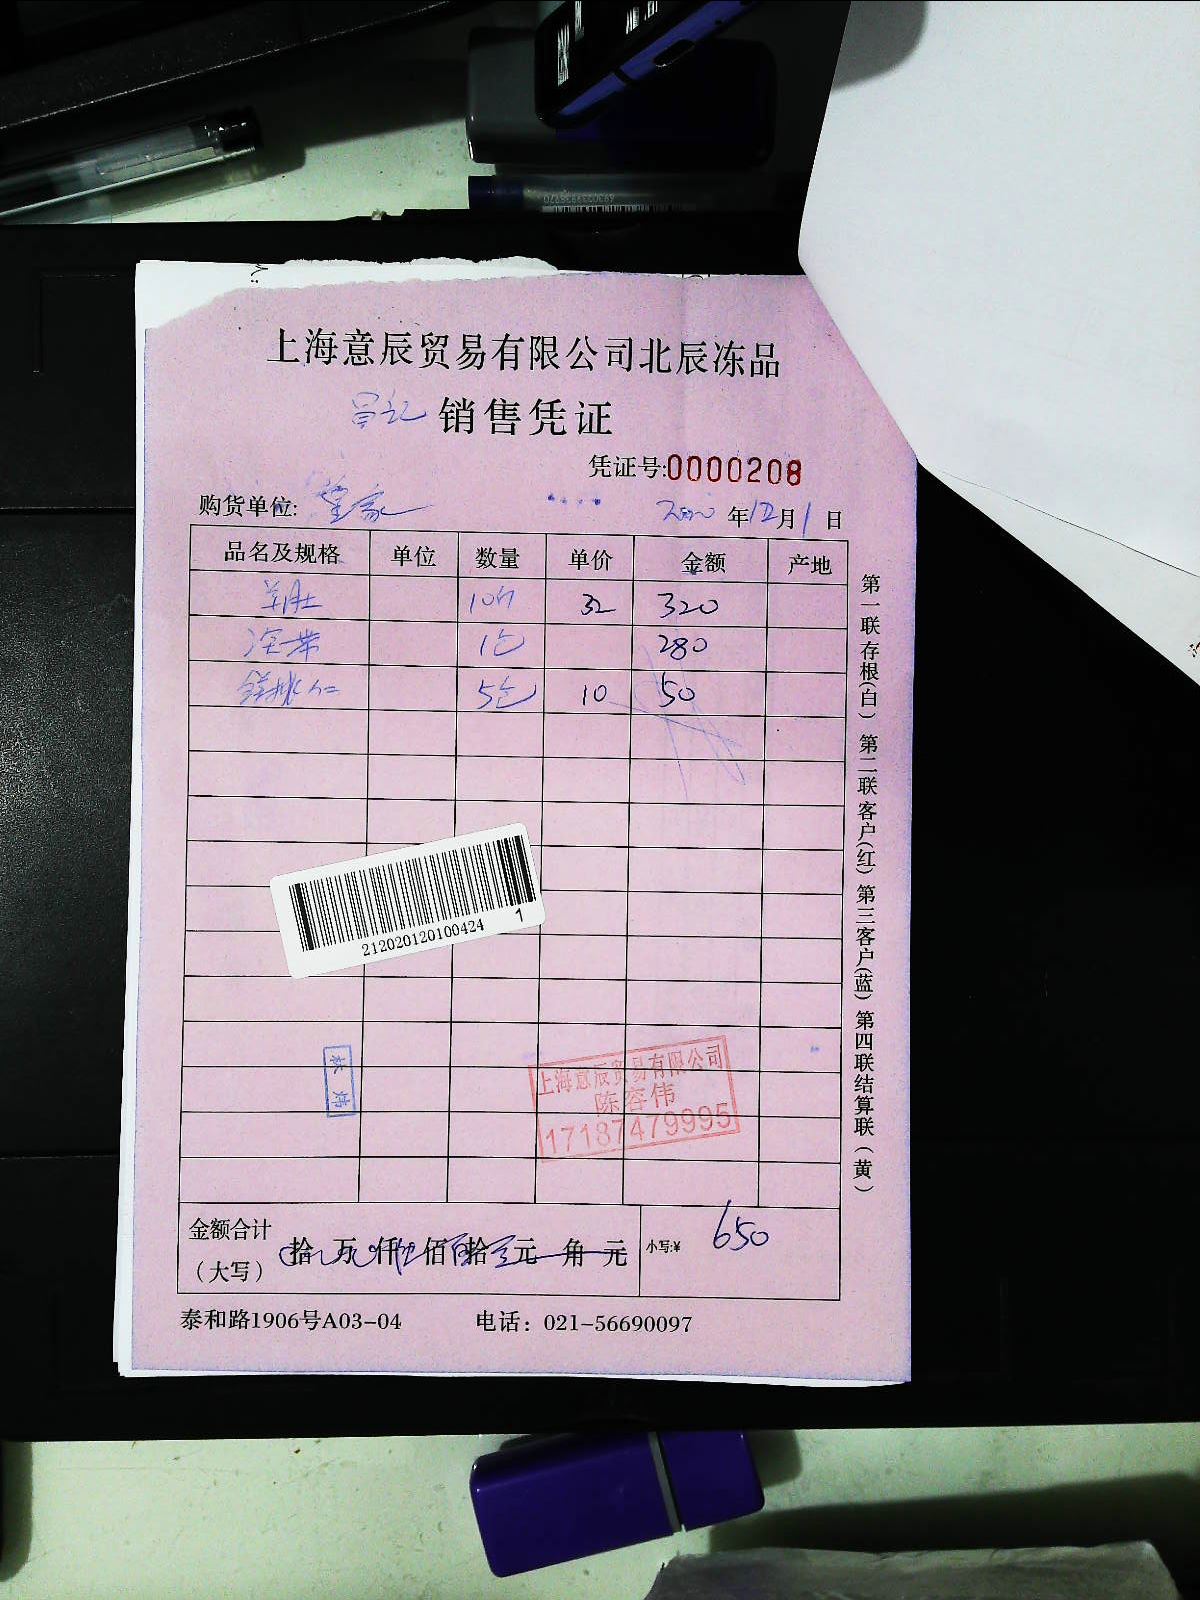 6930233938270
上海意辰贸易有限公司北辰冻品
销售凭证
凭证号:0000208
购货单位: 皇家 2020年12月1日
品名及规格 单位 数量 单价 金额 产地
羊肚 10斤 32 320
1包 280
5包 10 50
212020120100424 1
上海意辰贸易有限公司
陈容伟
17187479995
金额合计（大写） 拾 万 仟 佰 拾 元 角 元 小写:¥ 650
泰和路1906号A03-04 电话：021-56690097
第一联存根(白) 第二联客户(红) 第三客户(蓝) 第四联结算联(黄)